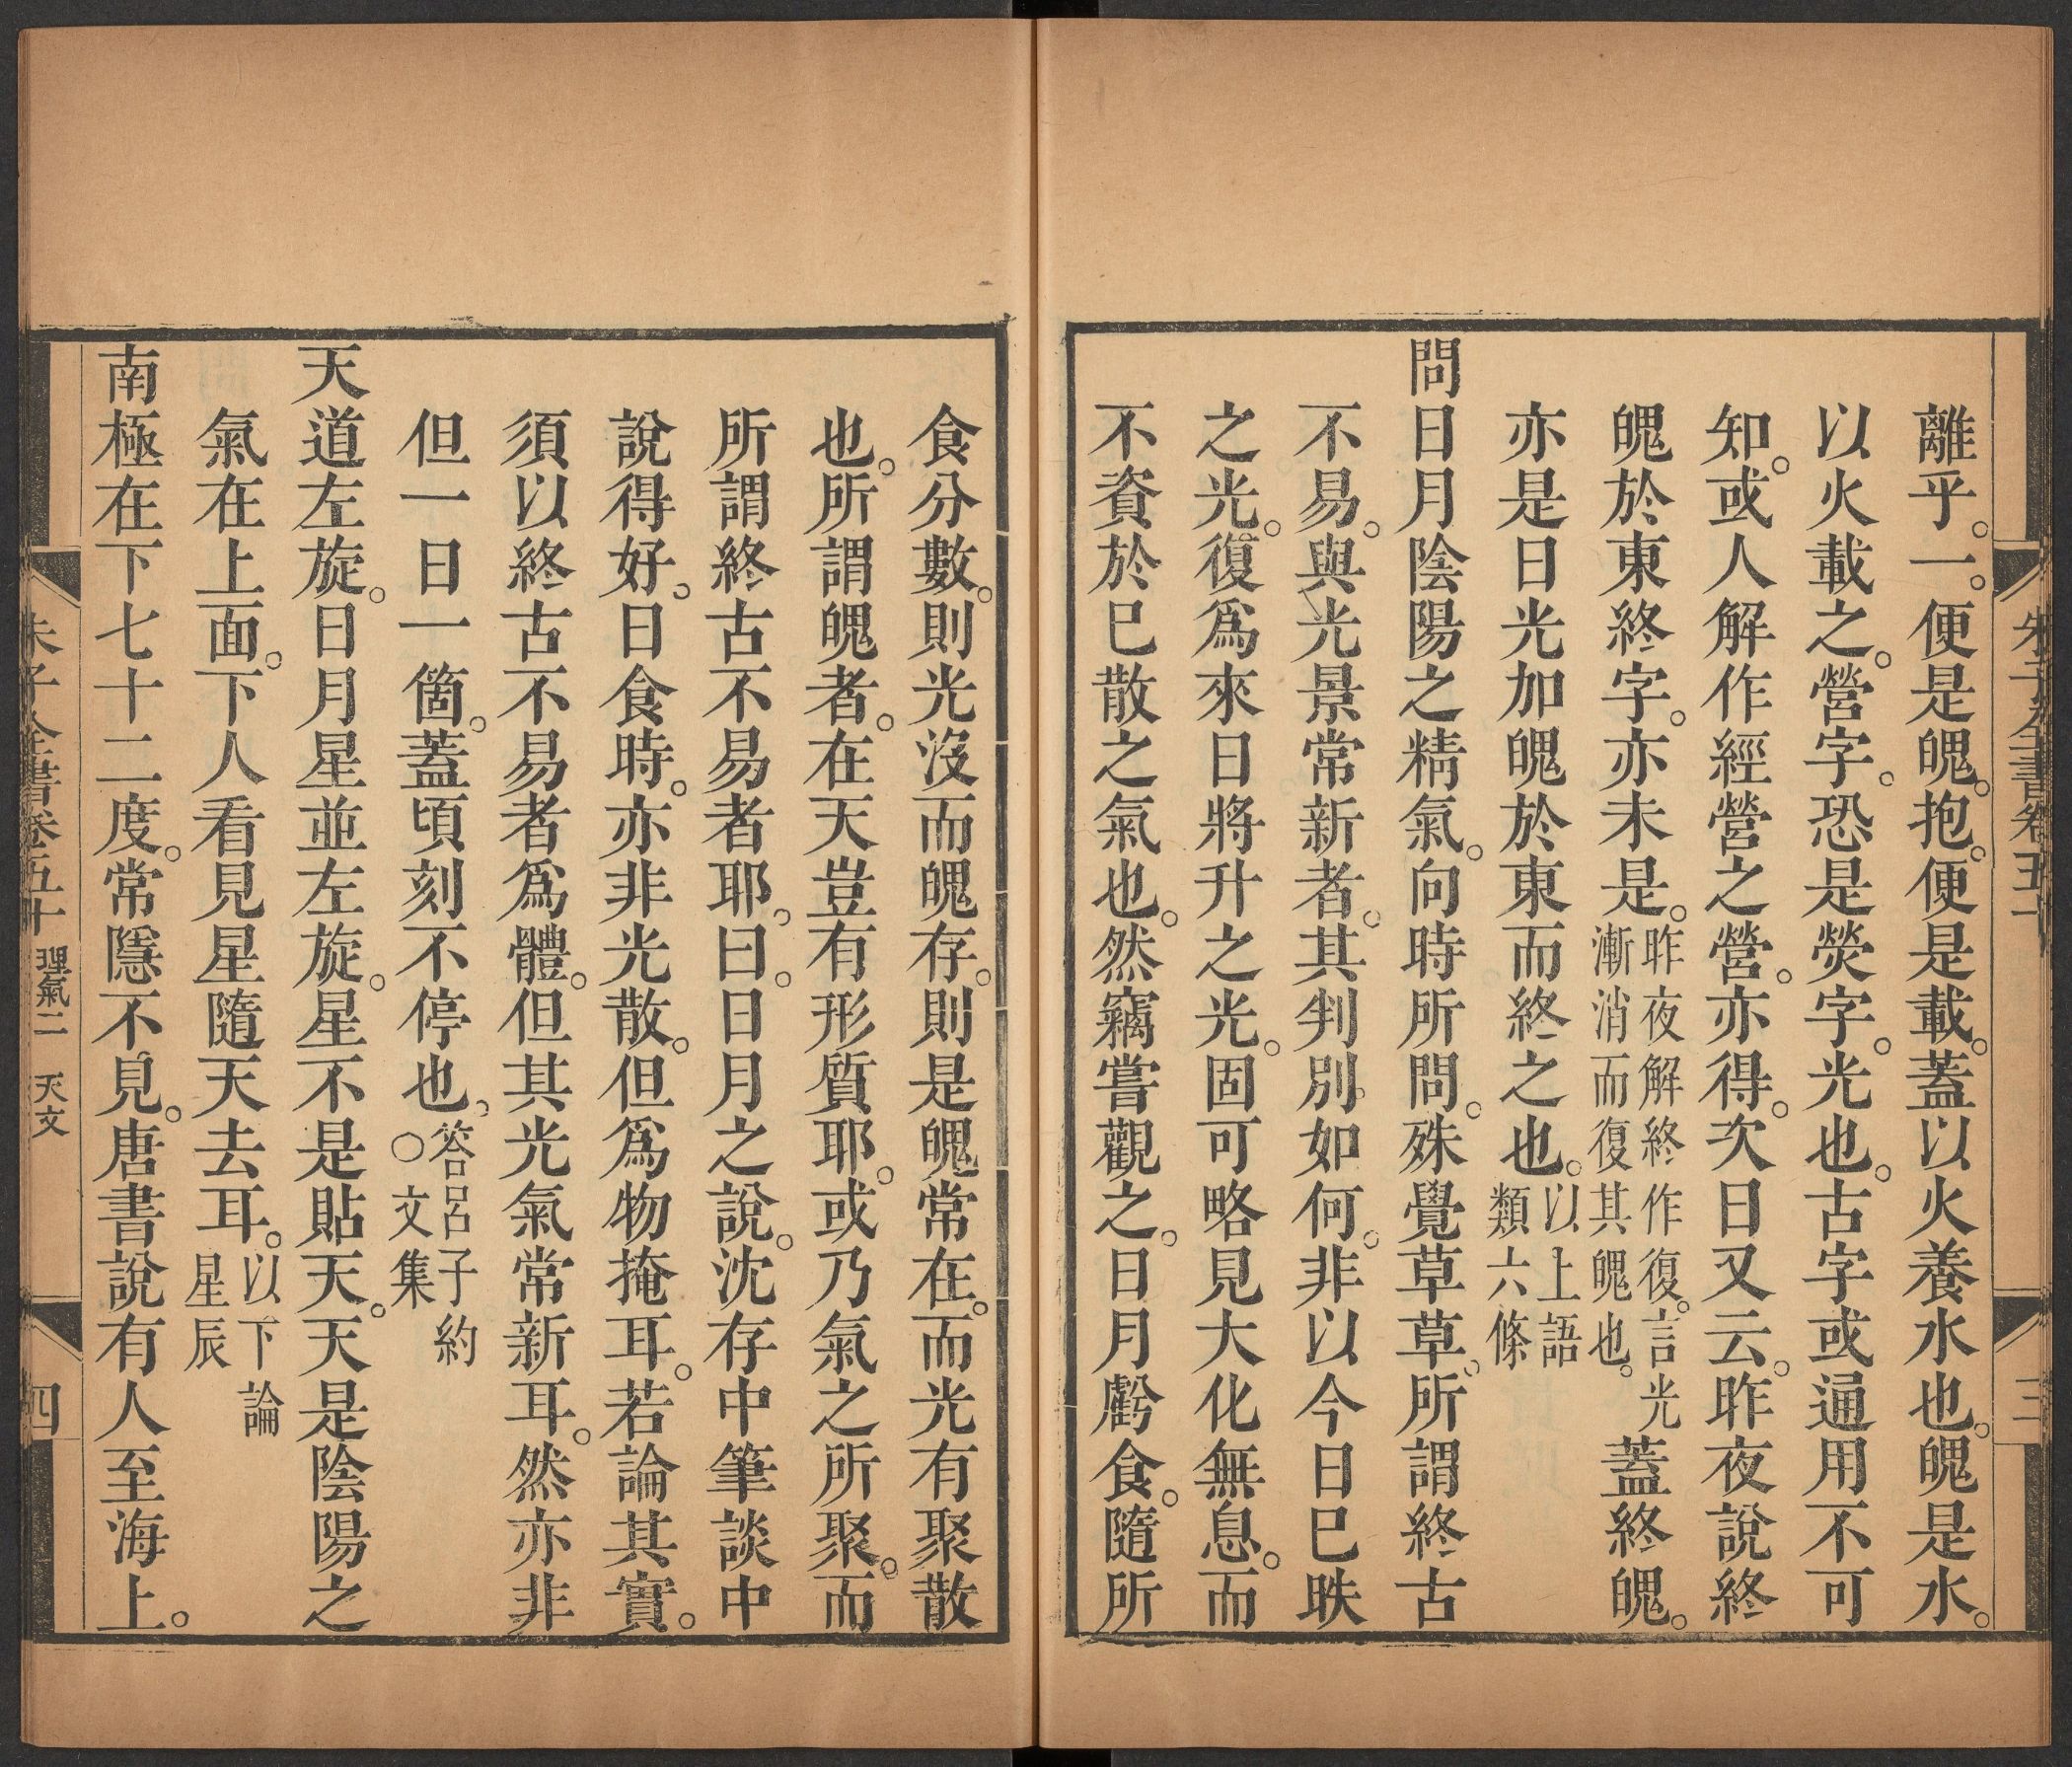 離乎。一。便是魄。抱。便是載。蓋以火養水也。魄是水。
以火載之。營字。恐是熒字。光也。古字或通用不可
知。或人解作經營之營。亦得。次日又云。昨夜說終
魄於東終字。亦未是。昨夜解終作復。言光漸消而復其魄也。蓋終魄。
亦是日光加魄於東而終之也。以上語類六條
問日月陰陽之精氣。向時所問。殊覺草草。所謂終古
不易。與光景常新者。其判別如何。非以今日已昳
之光。復爲來日將升之光。固可略見大化無息。而
不資於已散之氣也。然竊嘗觀之。日月虧食。隨所
食分數。則光沒而魄存。則是魄常在。而光有聚散
也。所謂魄者。在天豈有形質耶。或乃氣之所聚。而
所謂終古不易者耶。曰。日月之說。沈存中筆談中
說得好。日食時。亦非光散。但爲物掩耳。若論其實。
須以終古不易者爲體。但其光氣常新耳。然亦非
但一日一箇。蓋頃刻不停也。答呂子約○文集
天道左旋。日月星並左旋。星不是貼天。天是陰陽之
氣在上面。下人看見星隨天去耳。以下論星辰
南極在下七十二度。常隱不見。唐書說有人至海上。
朱子全書卷五十 理氣二 天文 四